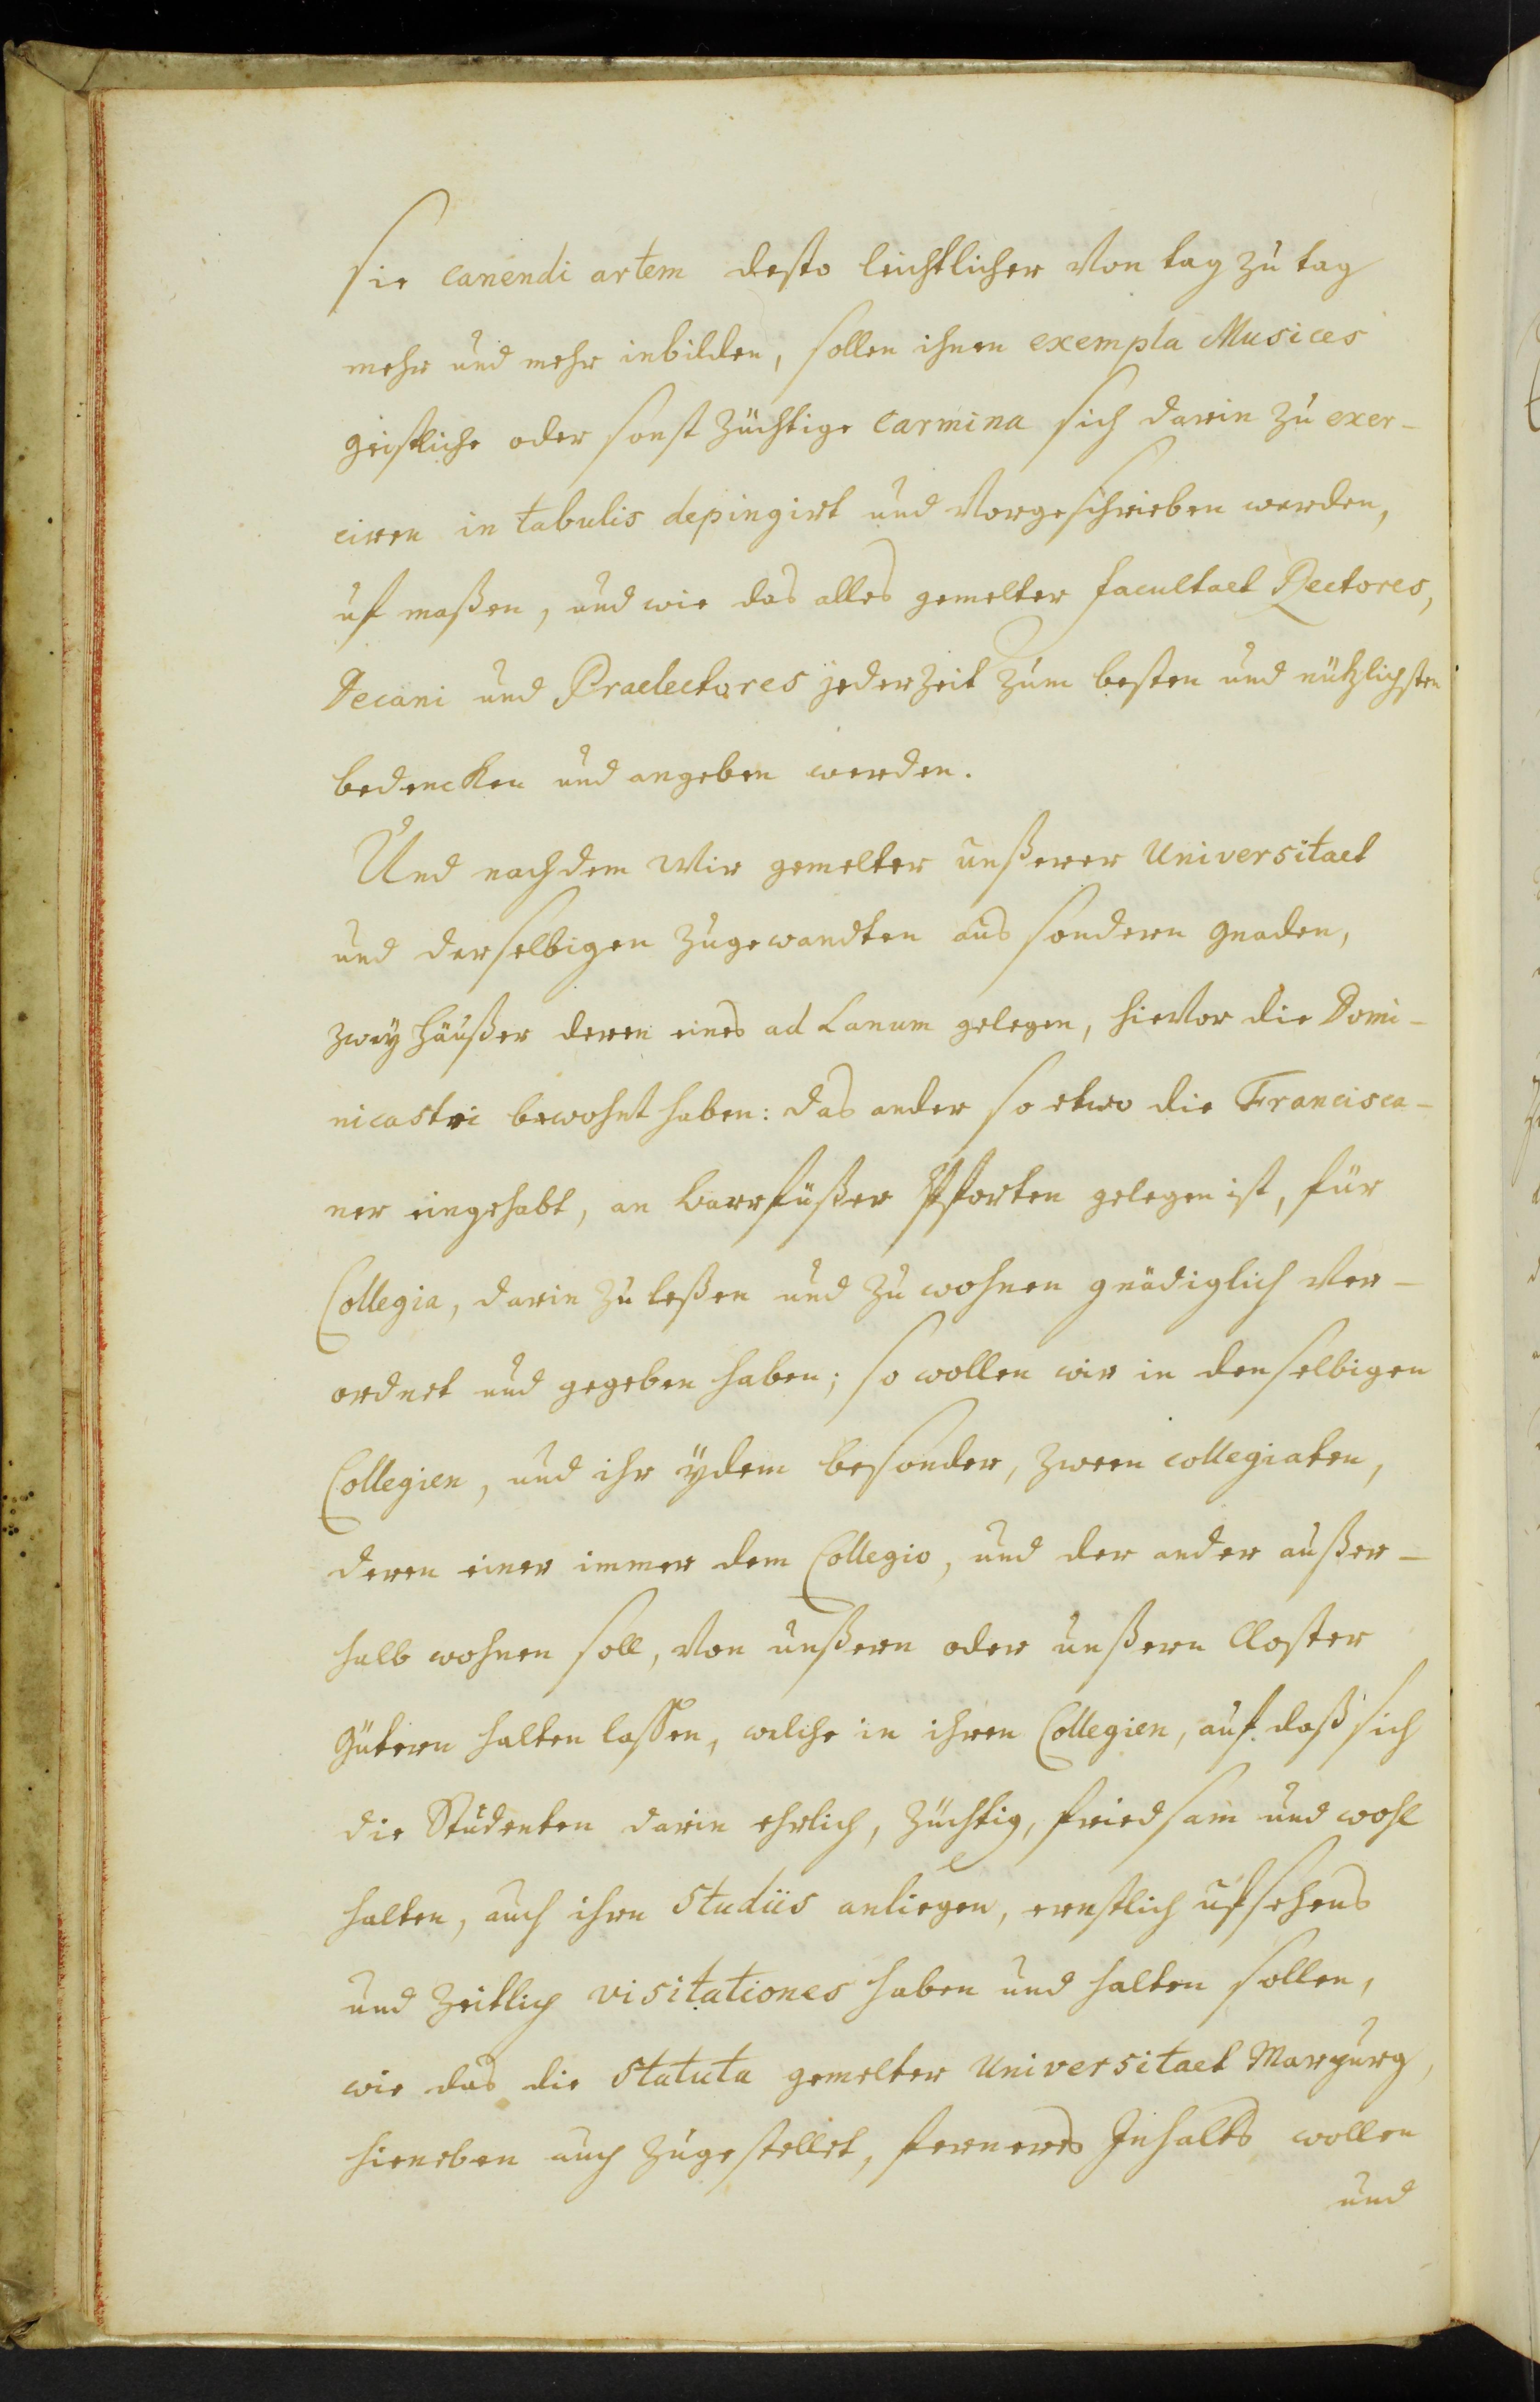 sie canendi artem desto leichtlicher von tag zu tag
mehr und mehr inbilden, sollen ihnen exempla Musices
geistliche oder sonst züchtige carmina sich darin zu exer-
ciren in tabulis depingirt und vorgeschrieben werden,
uf maßen, und wie das alles gemelter facultaet Rectores,
Decani und Praelectores jederzeit zum besten und nützlichsten
bedencken und angeben werden.
Und nachdem wir gemelter unßerer Universitaet
und derselbigen zugewandten aus sondern gnaden,
zwey häußer deren eines ad Lanum gelegen, hievor die Domi-
nicastri bewohnt haben: das ander so etwo die Francisca-
ner eingehabt, an barfüßer Pforten gelegen ist, für
Collegia, darin zu leßen und zu wohnen gnädiglich ver-
ordnet und gegeben haben; so wollen wir in denselbigen
Collegien, und ihr ydem besonder, zween collegiaten,
deren einer immer dem Collegio, und der ander außer-
halb wohnen soll, von unßern oder unßern Closter
gütern halten lassen, welche in ihren Collegien, auf daß sich
die Studenten darin ehrlich, züchtig, friedsam und wohl
halten, auch ihrn Studiis anliegen, ernstlich ufsehens
und zeitlich visitationes haben und halten sollen,
wie das die Statuta gemelter Universitaet Marpurg,
hieneben auch zugestellet, ferneres Inhalts wollen
und